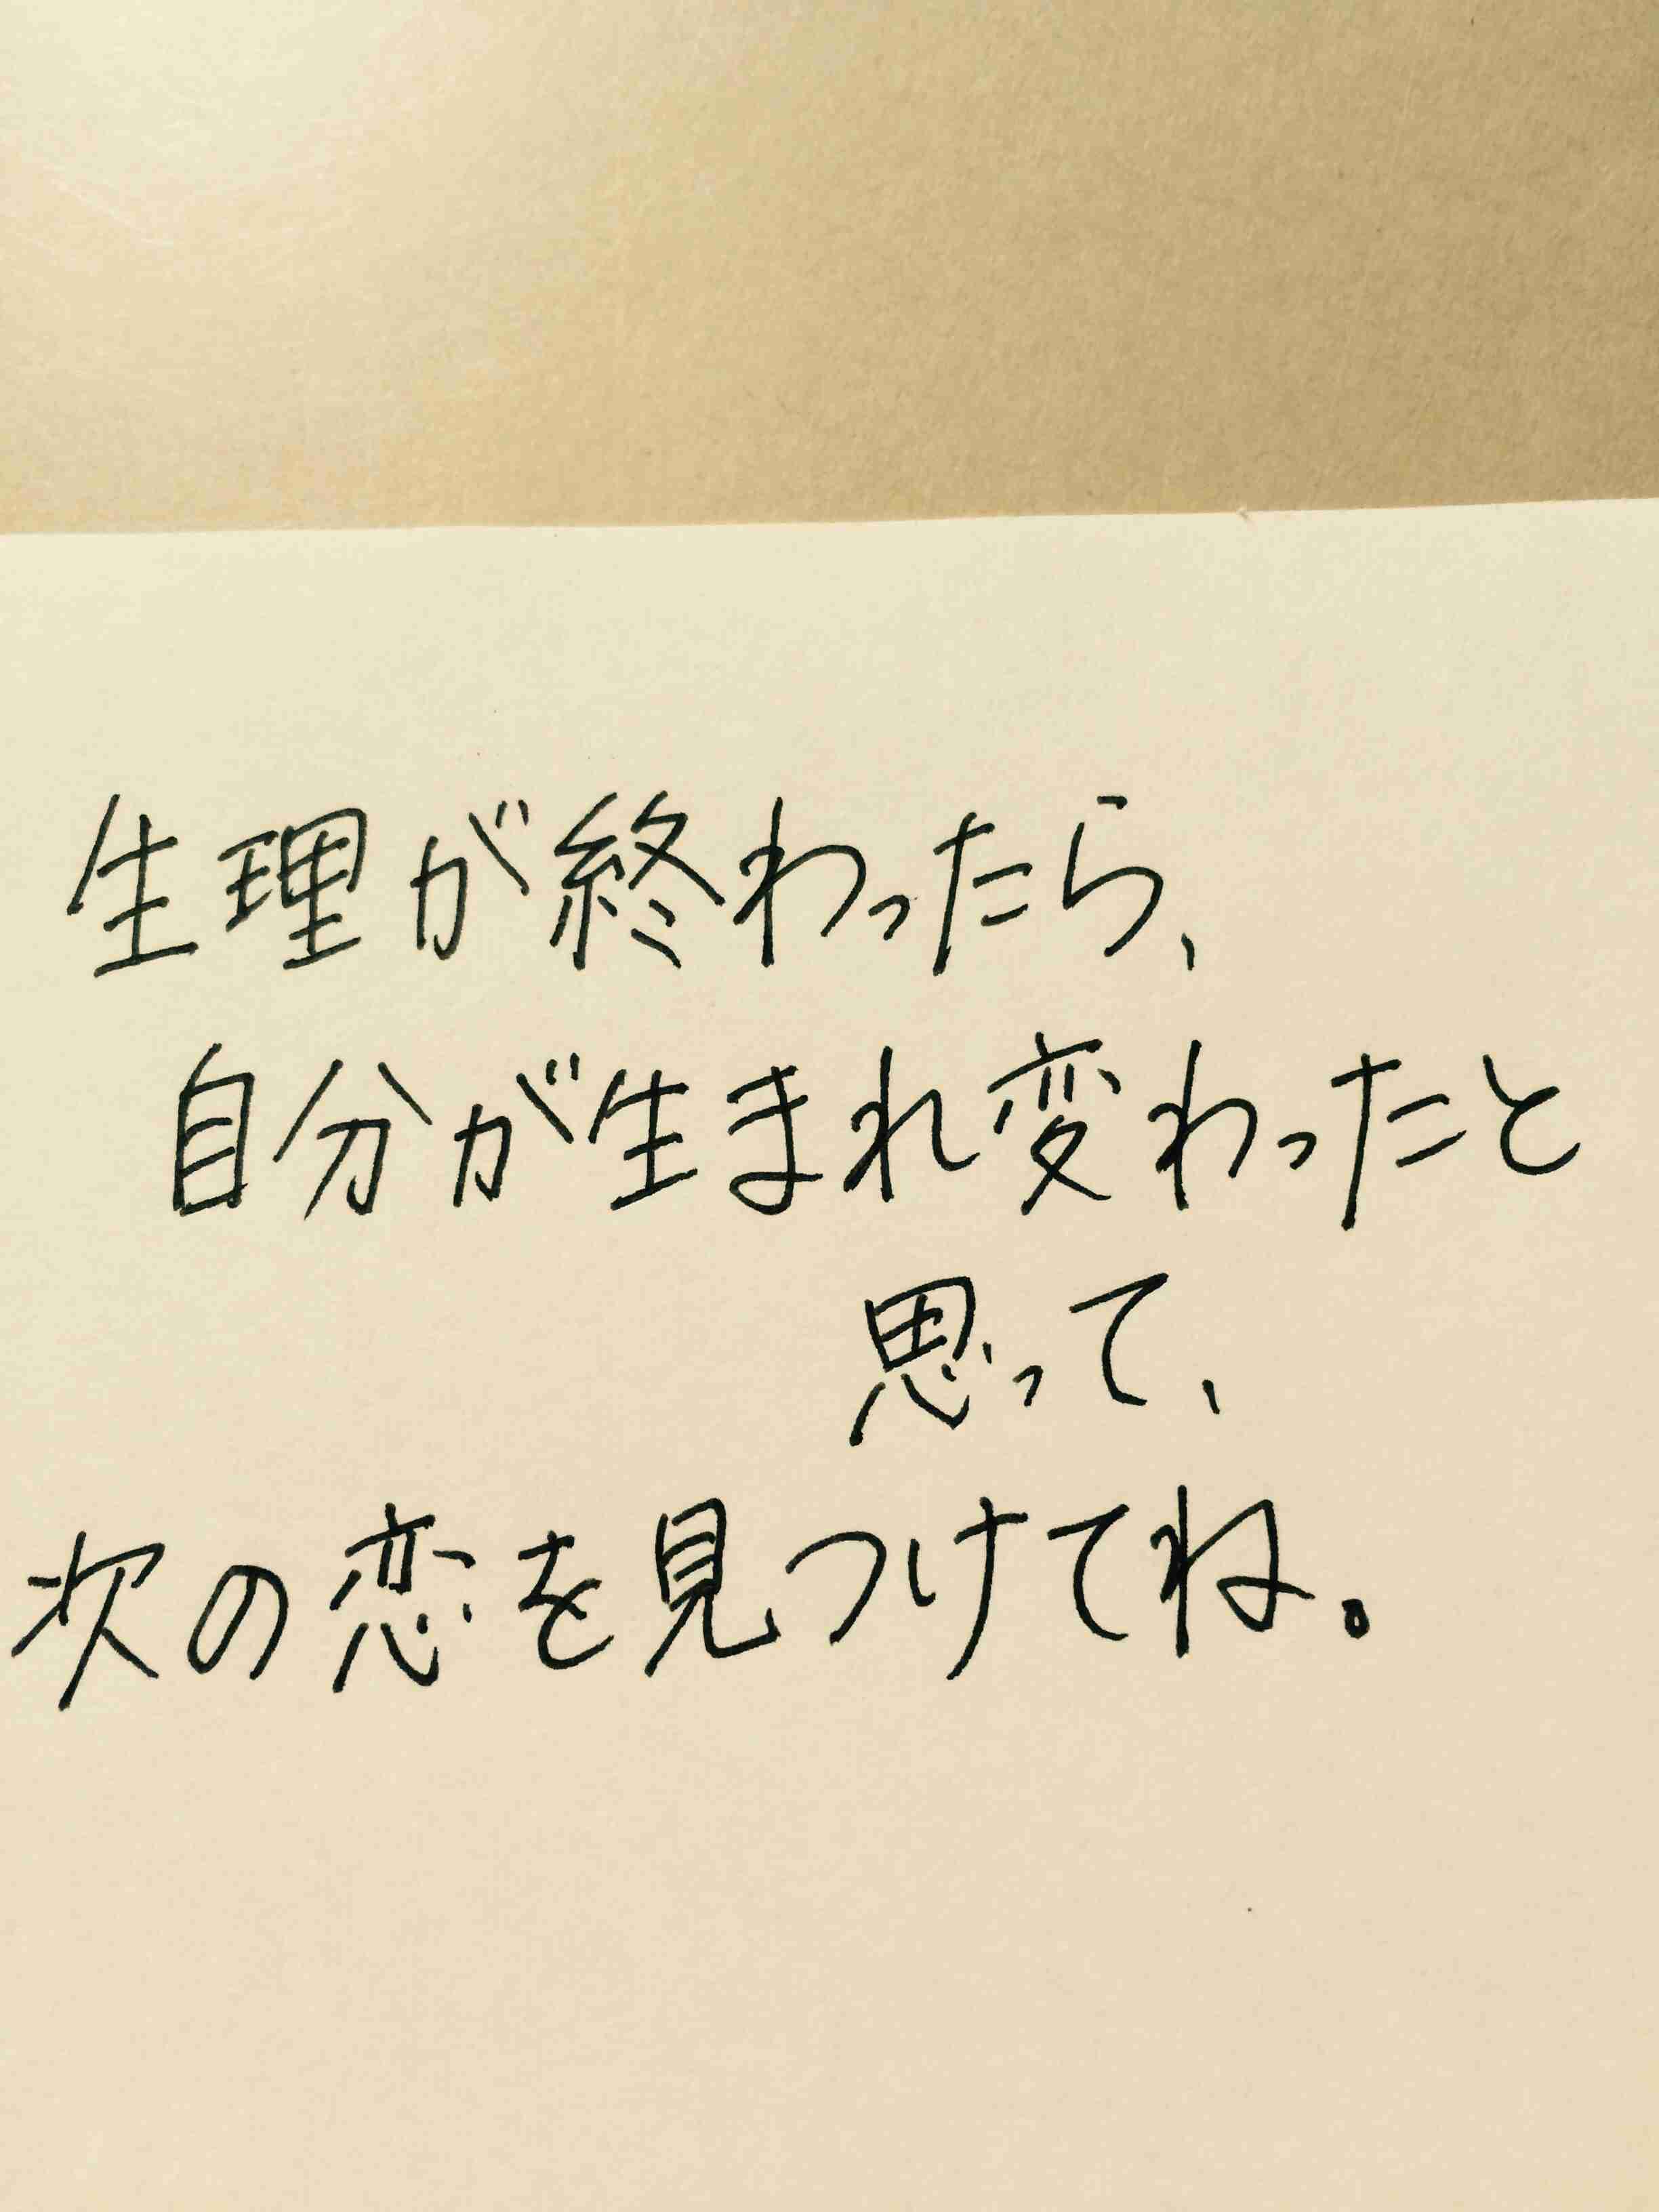 生理が終わったら、
自分が生まれ変わったと
思って、
次の恋を見つけてね。